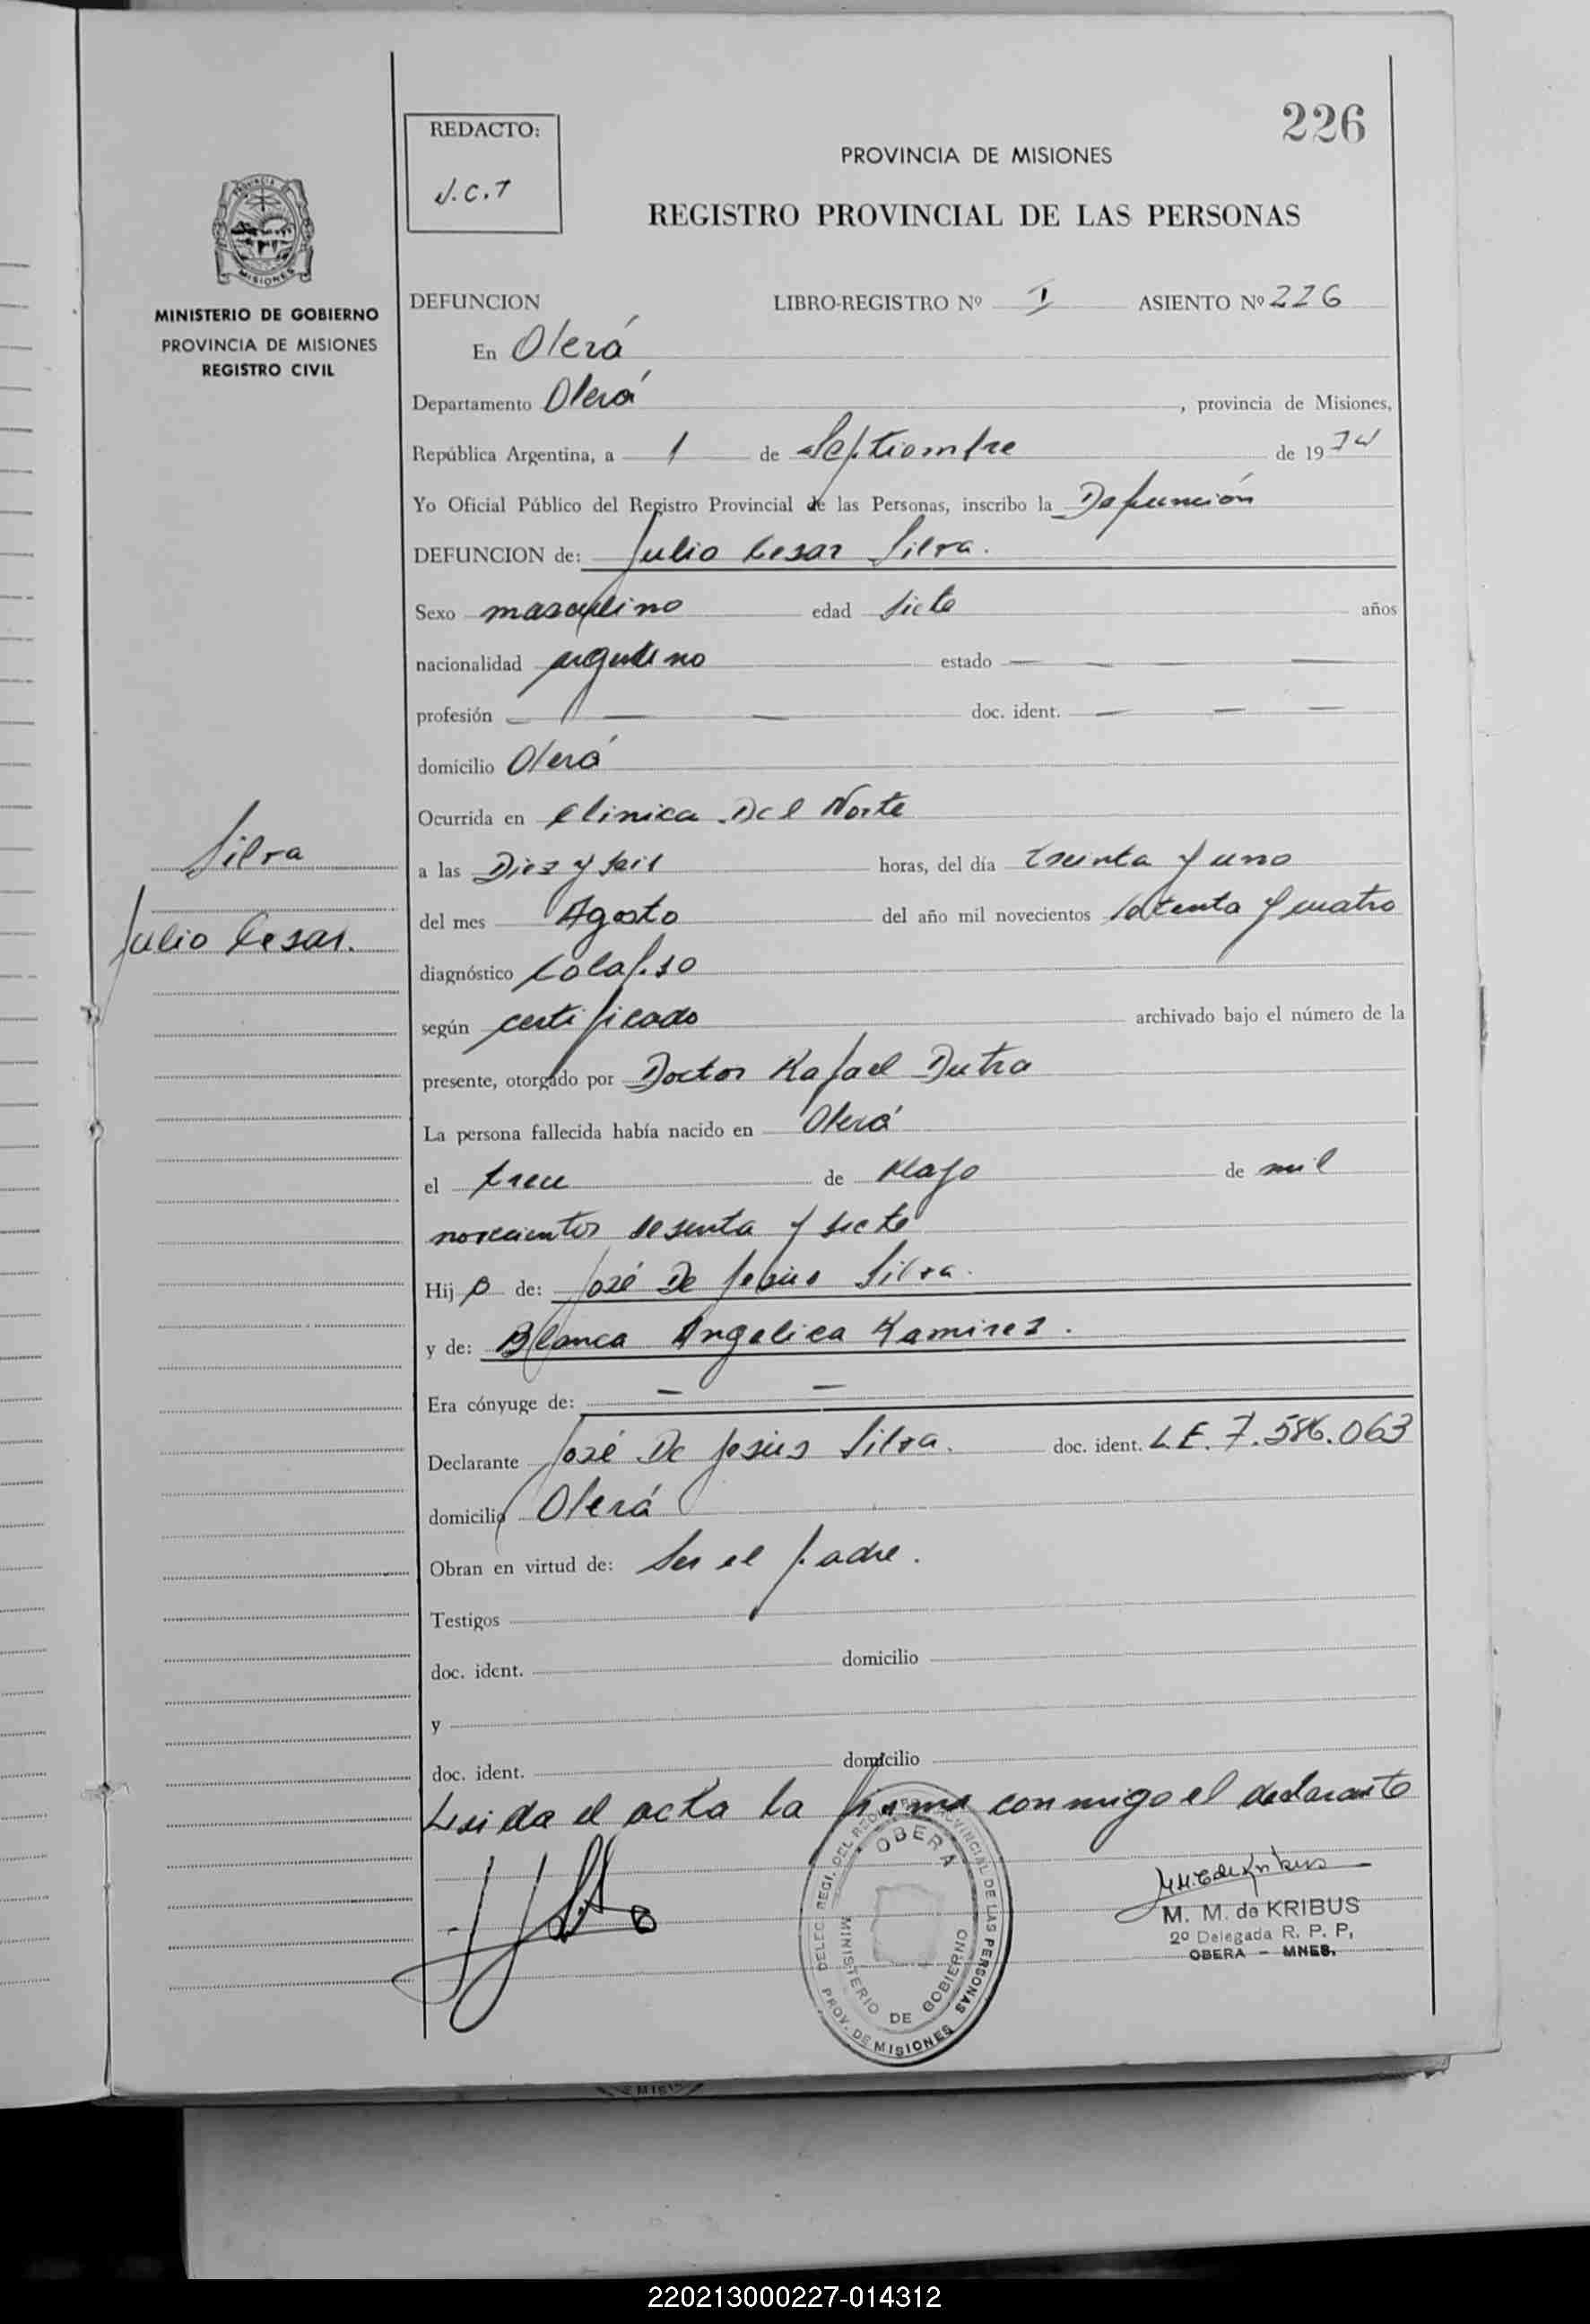 226
REDACTO:
J.C.T
PROVINCIA DE MISIONES
REGISTRO PROVINCIAL DE LAS PERSONAS
MINISTERIO DE GOBIERNO
PROVINCIA DE MISIONES
REGISTRO CIVIL
DEFUNCION LIBRO-REGISTRO Nº I ASIENTO Nº 226
En Oberá
Departamento Oberá, provincia de Misiones,
República Argentina, a 1 de Septiembre de 1974
Yo Oficial Público del Registro Provincial de las Personas, inscribo la Defunción
DEFUNCION de: Julio Cesar Silva.
Sexo masculino edad siete años
nacionalidad argentino estado — — — —
profesión — — — doc. ident. — — —
domicilio Oberá
Ocurrida en Clinica Del Norte
Silva
a las Diez y seis horas, del día treinta y uno
Julio Cesar.
del mes Agosto del año mil novecientos setenta y cuatro
diagnóstico Colapso
según certificado archivado bajo el número de la
presente, otorgado por Doctor Rafael Dutra
La persona fallecida había nacido en Oberá
el trece de Mayo de mil
novecientos sesenta y siete
Hijo de: José De Jesús Silva.
y de: Blanca Angelica Ramirez.
Era cónyuge de: — —
Declarante José De Jesús Silva. doc. ident. L.E. 7.586.063
domicilio Oberá
Obran en virtud de: Ser el padre.
Testigos
doc. ident. domicilio
y
doc. ident. domicilio
Leida el acta la firma conmigo el declarante
DELEG. REGI. DEL REGISTRO PROVINCIAL DE LAS PERSONAS
OBERA
MINISTERIO DE GOBIERNO
PROV. DE MISIONES
M. M. de KRIBUS
2º Delegada R. P. P,
OBERA - MNES.
220213000227-014312